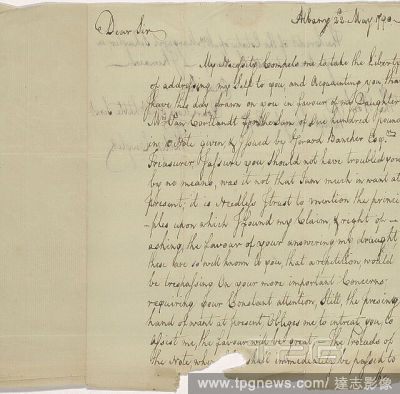 Albany 22 May 1790
Dear Sir
My Necessity Compels me to take the Liberty
of addressing my Self to you, and Acquainting you that
I have this day drawn on you in favour of my Daughter
Mrs Van Cortlandt for the Sum of One hundred Pounds
in a Note given & Issued by Gerard Bancker Esqr
Treasurer, I assure you Should not have troubled you
by no means, was it not that I am much in want at
present, it is Needless I trust to mention the princi
-ples upon which I found my Claim & right of
asking the favour of your answering my draught
these are so well known to you, that a repitition would
be trespassing On your more important Concerns
requiring your Constant attention, Still, the pressing
hand of want at present Obliges me to intreat you to
assist me, the favour will be great, The
of the Note when shall immediately be passed to
www.tpgnews.com / 達志影像